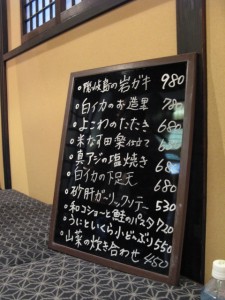 ○隠岐島の岩ガキ 980
○白イカのお造里 780
○よこわのたたき 680
○米なす田楽仕立て 680
○真アジの塩焼き 680
○白イカの下足天 680
○砂肝ガーリックソテー 530
○和コショーと鮭のパスタ 720
○うにといくら小どんぶり 550
○山菜の炊き合わせ 460